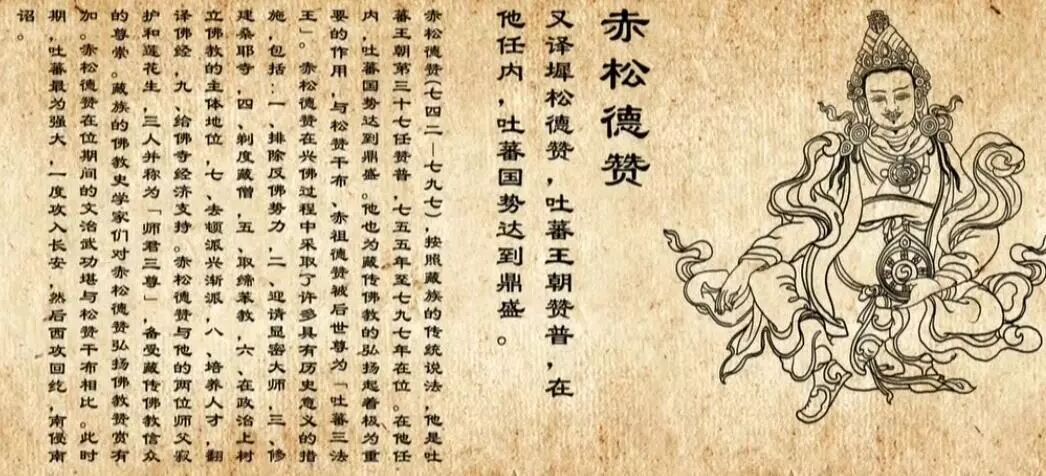 赤松德赞
又译墀松德赞，吐蕃王朝赞普，在
他任内，吐蕃国势达到鼎盛。
赤松德赞(七四二—七九七)，按照藏族的传统说法，他是吐
蕃王朝第三十七任赞普，七五五年至七九七年在位。在他任
内，吐蕃国势达到鼎盛。他也为藏传佛教的弘扬起着极为重
要的作用，与松赞干布、赤祖德赞被后世尊为「吐蕃三法
王」。赤松德赞在兴佛过程中采取了许多具有历史意义的措
施，包括：一、排除反佛势力，二、迎请显密大师，三、修
建桑耶寺，四、剃度藏僧，五、取缔苯教，六、在政治上树
立佛教的主体地位，七、去顿派兴渐派，八、培养人才，翻
译佛经，九、给佛寺经济支持。赤松德赞与他的两位师父寂
护和莲花生，三人并称为「师君三尊」，备受藏传佛教信众
的尊崇。藏族的佛教史学家们对赤松德赞弘扬佛教赞赏有
加。赤松德赞在位期间的文治武功堪与松赞干布相比。此时
期，吐蕃最为强大，一度攻入长安，然后西攻回纥，南侵南
诏。